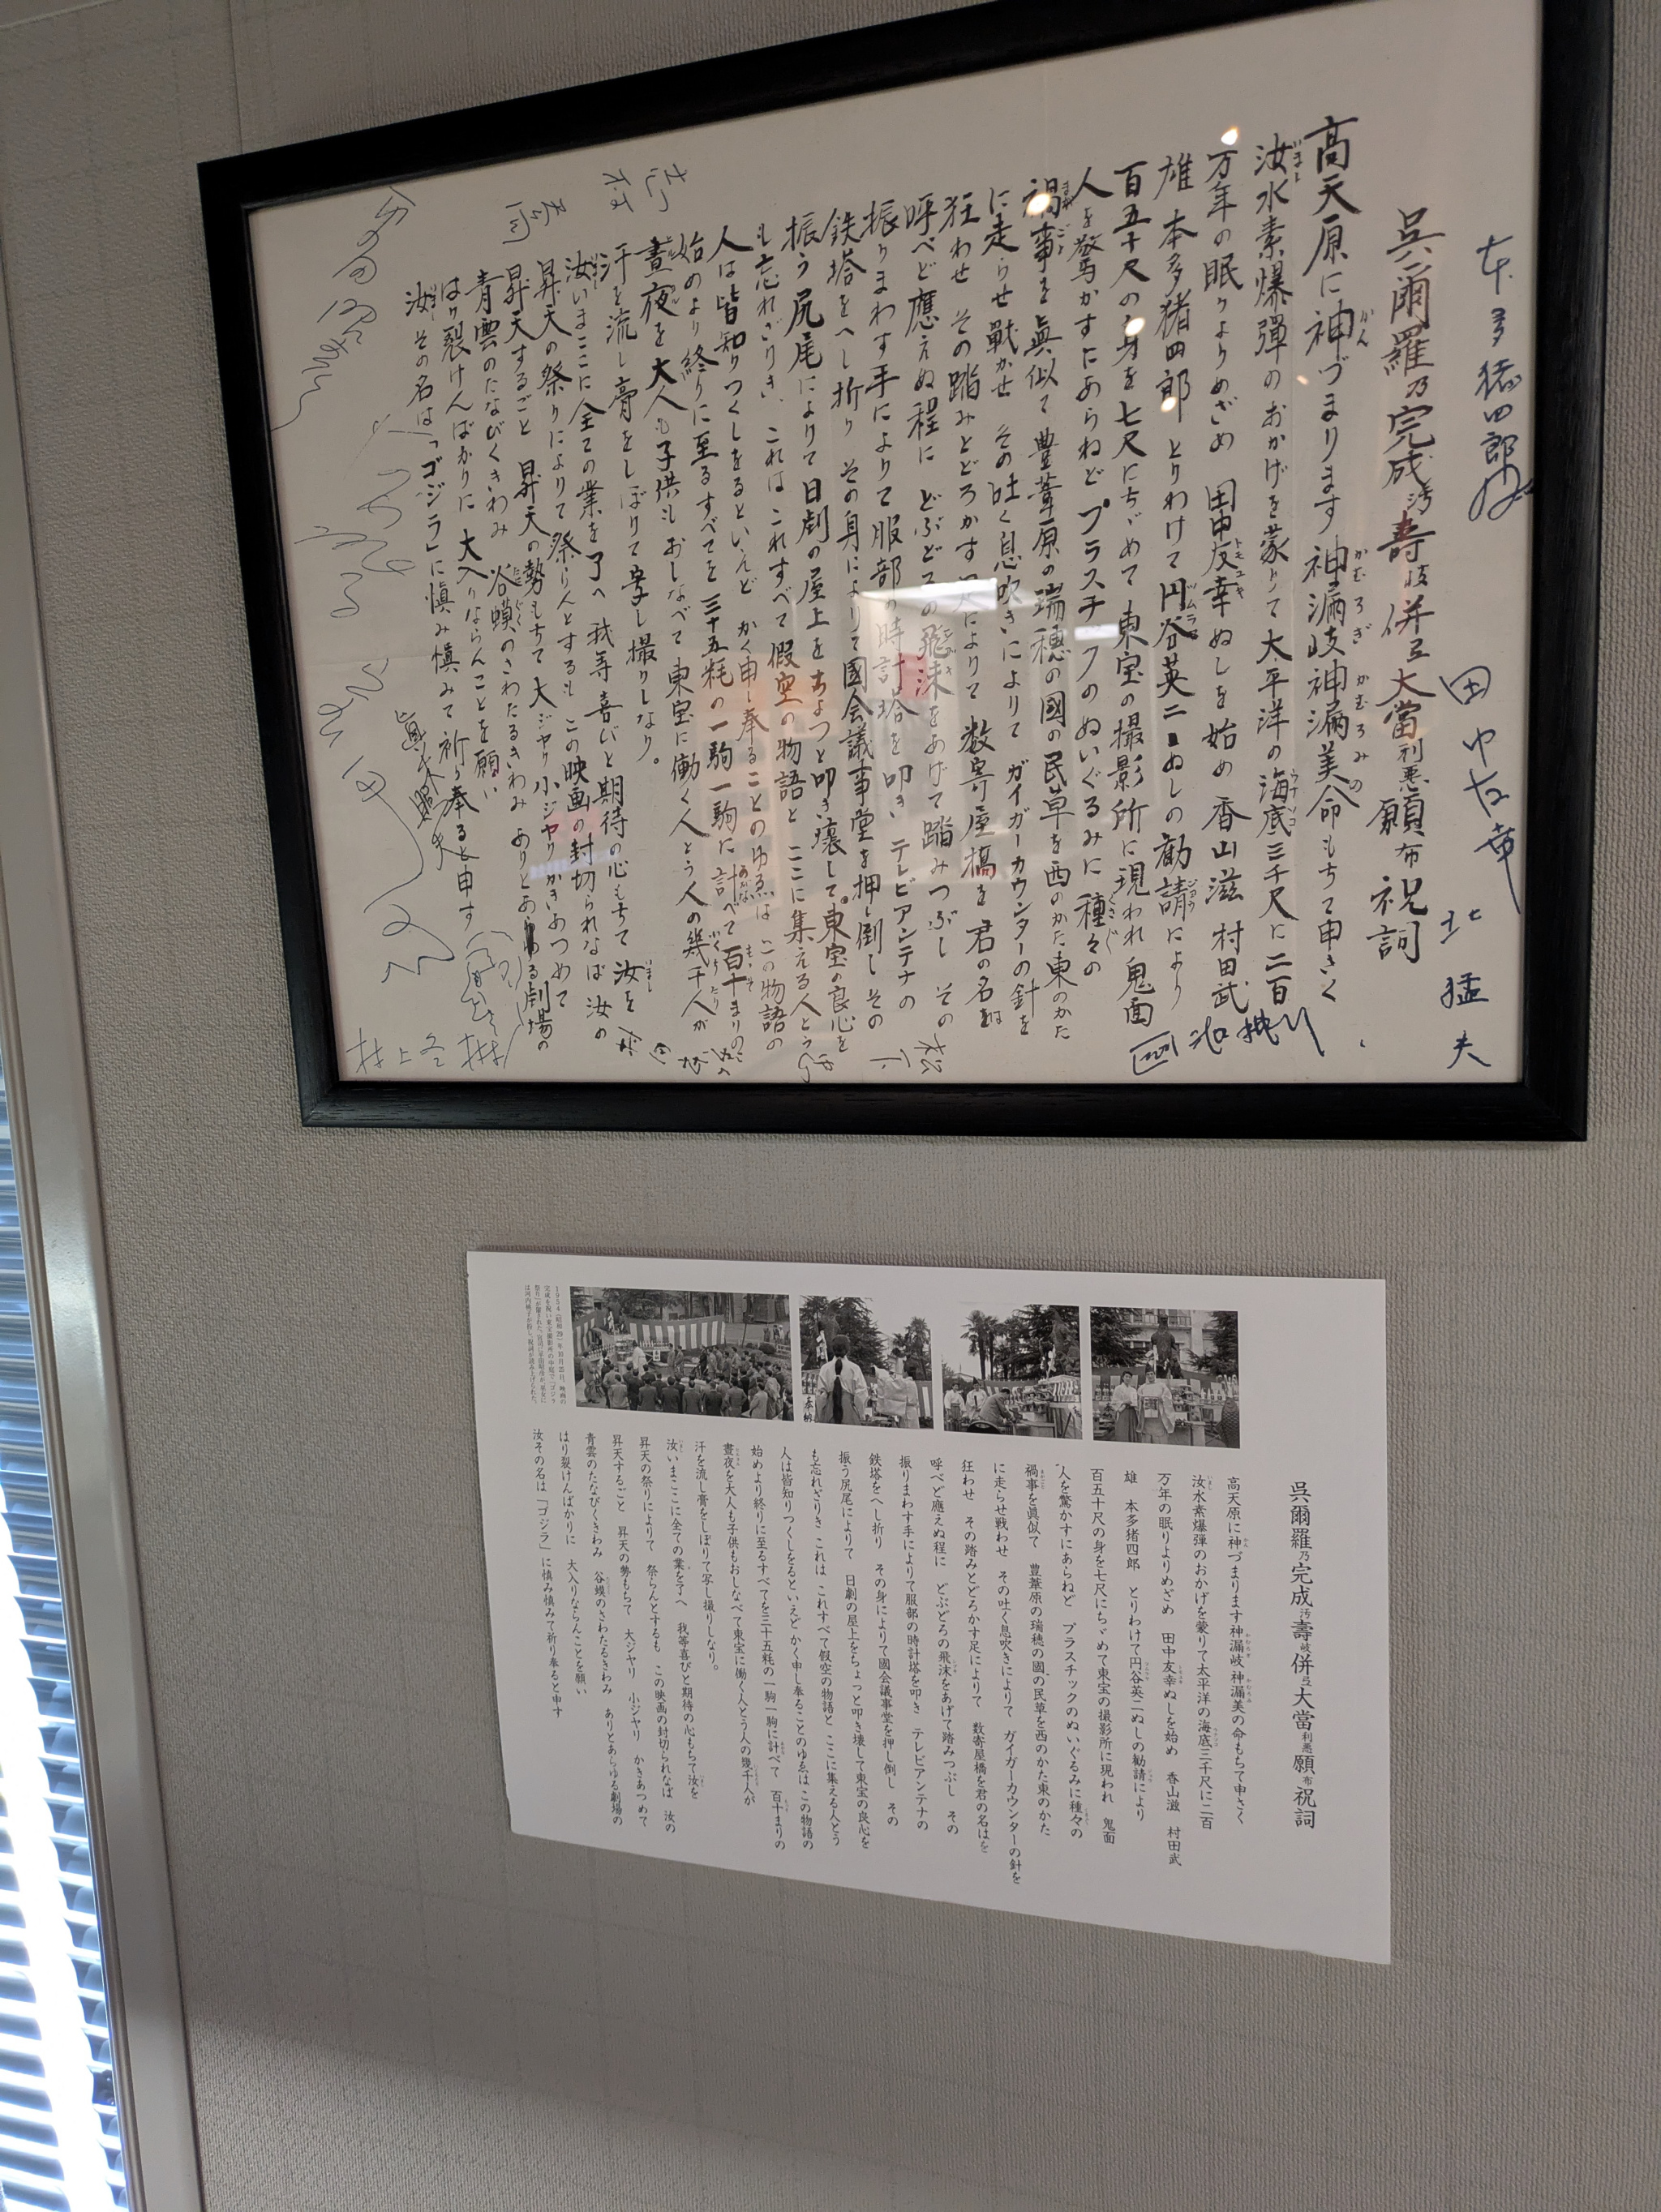 本多猪四郎
田中友幸
北 猛夫
呉爾羅乃完成汚壽岐併弖大當利悪願布祝詞
高天原に神づまります 神漏岐神漏美命もちて申さく
汝水素爆彈のおかげを蒙りて大平洋の海底三千尺に二百
万年の眠りよりめざめ 田中友幸ぬしを始め 香山滋 村田武
雄 本多猪四郎 とりわけて円谷英二ぬしの勧請により
百五十尺の身を七尺にちゞめて東宝の撮影所に現われ 鬼面
人を驚かすにあらねど プラスチックのぬいぐるみに種々の
禍事を眞似て 豊葦原の瑞穂の國の民草を西のかた東のかた
に走らせ戦かせ その吐く息吹きによりて ガイガーカウンターの針を
狂わせ その踏みとどろかす足によりて 数寄屋橋を君の名は
呼べど應えぬ程に どぶどろの飛沫をあげて踏みつぶし その
振りまわす手によりて服部の時計塔を叩き テレビアンテナの
鉄塔をへし折り その身によりて國会議事堂を押し倒し その
振う尻尾によりて日劇の屋上をちょっと叩き壊して東宝の良心を
も忘れざりき、これは これすべて假空の物語と ここに集える人とう
人は皆知りつくしをるといえど かく申し奉ることのゆゑは この物語の
始めより終りに至るすべてを三十五粍の一駒一駒に計べて 百十まりの
晝夜を大人も子供もおしなべて東宝に働く人とう人の幾千人が
汗を流し膏をしぼりて写し撮りしなり。
汝いまここに全ての業を了へ 我等喜びと期待の心もちて 汝を
昇天の祭りによりて 祭らんとするも この映画の封切られなば 汝の
昇天するごと 昇天の勢もちて 大ジャリ小ジャリかきあつめて
青雲のたなびくきわみ 谷蟆のさわたるきわみ ありとあらゆる劇場の
はり裂けんばかりに 大入りならんことを願い
汝 その名は「ゴジラ」に慎み慎みて祈り奉ると申す
眞木照夫
呉爾羅乃完成汚壽岐併弖大當利悪願布祝詞
高天原に神づまります神漏岐神漏美の命もちて申さく
汝水素爆弾のおかげを蒙りて太平洋の海底三千尺に二百
万年の眠りよりめざめ 田中友幸ぬしを始め 香山滋 村田武
雄 本多猪四郎 とりわけて円谷英二ぬしの勧請により
百五十尺の身を七尺にちゞめて東宝の撮影所に現われ 鬼面
人を驚かすにあらねど プラスチックのぬいぐるみに種々の
禍事を眞似て 豊葦原の瑞穂の國の民草を西のかた東のかた
に走らせ戦わせ その吐く息吹きによりて ガイガーカウンターの針を
狂わせ その踏みとどろかす足によりて 数寄屋橋を君の名はを
呼べど應えぬ程に どぶどろの飛沫をあげて踏みつぶし その
振りまわす手によりて服部の時計塔を叩き テレビアンテナの
鉄塔をへし折り その身によりて國会議事堂を押し倒し その
振う尻尾によりて 日劇の屋上をちょっと叩き壊して東宝の良心を
も忘れざりき これは これすべて假空の物語と ここに集える人とう
人は皆知りつくしをるといえど かく申し奉ることのゆゑは この物語の
始めより終りに至るすべてを三十五粍の一駒一駒に計べて 百十まりの
晝夜を大人も子供もおしなべて東宝に働く人とう人の幾千人が
汗を流し膏をしぼりて写し撮りしなり。
汝いまここに全ての業を了へ 我等喜びと期待の心もちて汝を
昇天の祭りによりて 祭らんとするも この映画の封切られなば 汝の
昇天するごと 昇天の勢もちて 大ジヤリ 小ジヤリ かきあつめて
青雲のたなびくきわみ 谷蟆のさわたるきわみ ありとあらゆる劇場の
はり裂けんばかりに 大入りならんことを願い
汝その名は「ゴジラ」に慎み慎みて祈り奉ると申す